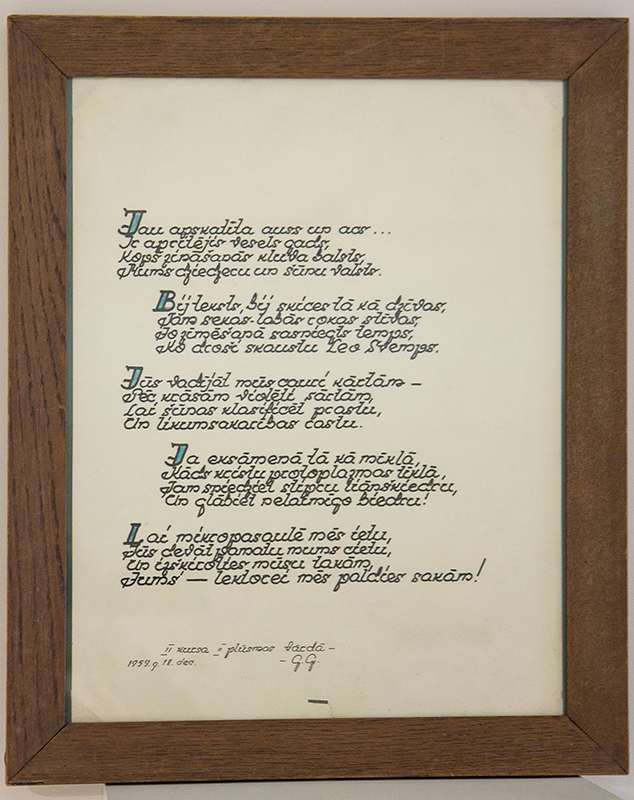 Jau apskatīta auss un acs ...
Ir apritējis vesels gads,
Kopš zināšanās kļuva balsts,
Mums dziedzeru un šūnu valsts.
Bij teksts, bij skices tā kā dzīvas,
Tām sekas labās rokas stīvas,
Jo zīmēšanā sasniegts temps,
Ko droši skaustu Leo Svemps.
Jūs vadījāt mūs cauri kārtām —
Pēc krāsām violēti sārtām,
Lai šūnas klasificēt prastu,
Un likumsakarības rastu.
Ja eksāmenā tā kā mīklā,
Kāds kristu protoplazmas tīklā,
Tam sniedziet slipru šķiedru,
Un glābiet nelaimīgo biedru!
Lai mikropasaulē mēs ietu,
Jūs devāt pamatu mums cietu,
Un izšķiroties mūsu takām,
Jums — lektorei mēs paldies sakām!
II kursa II plūsmas vārdā —
1959.g. 18. dec. — G.G.